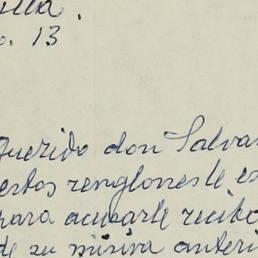 o. 13
Querido don Salva
estos renglones le es
para acusarle recibo
de su misiva anteri